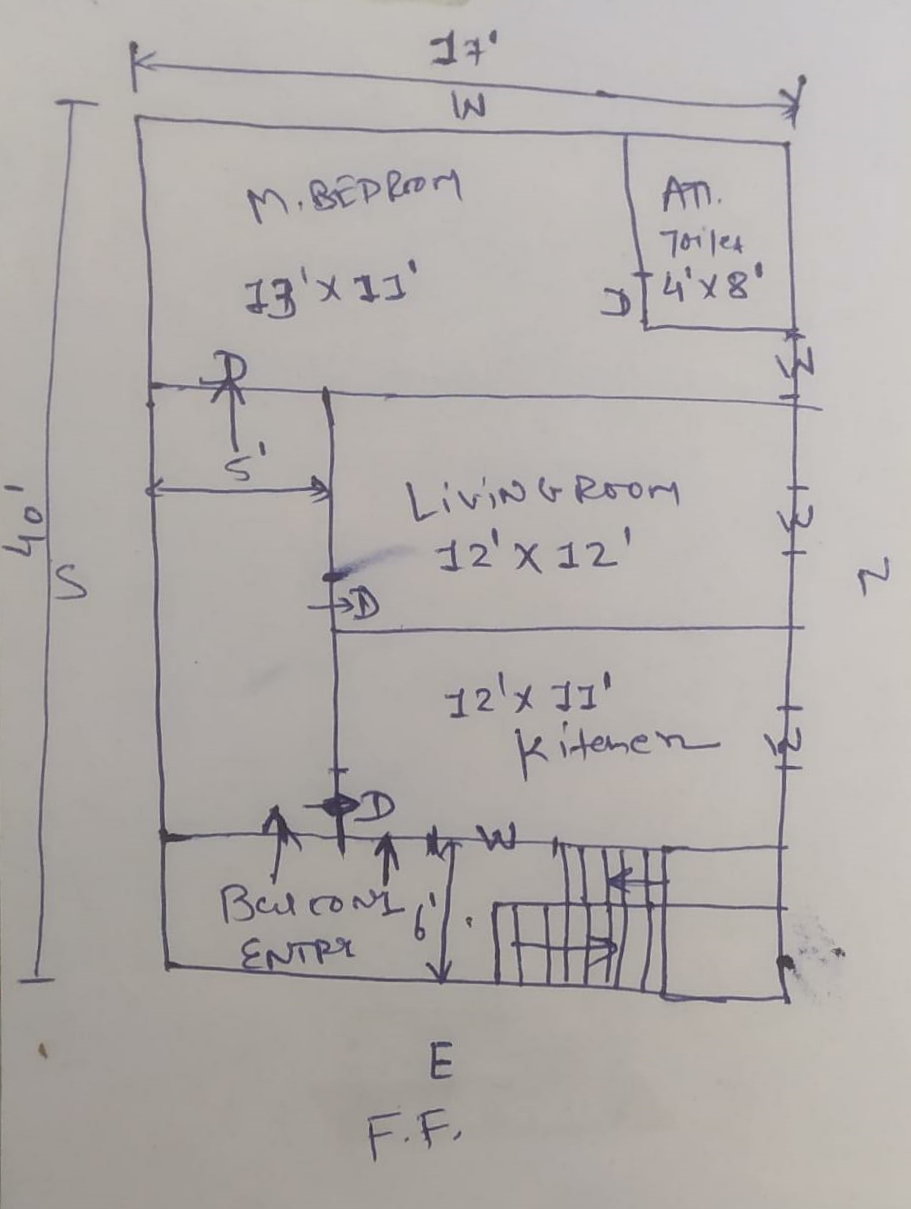 17'
W
M. BEDROOM
13' X 11'
ATT.
Toilet
4' X 8'
D
W
D
5'
LiViNG ROOM
12' X 12'
W
40'
S
N
D
12' X 11'
Kitchen
W
D
W
Balcony
6'
ENTRY
E
F.F.